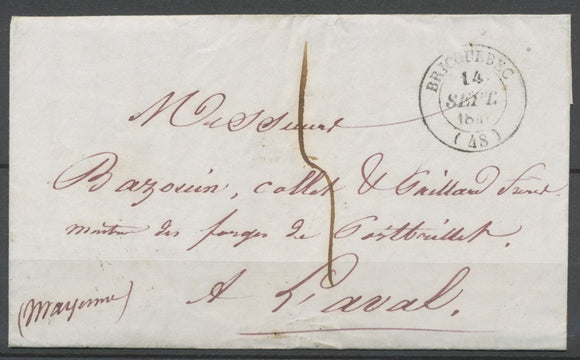 BRICQUEBEC
14
SEPT.
184
(48)
Messieurs
Bazouin, collet & Gaillard frères
maitre des forges de Portbrillet.
A Laval.
(Mayenne)